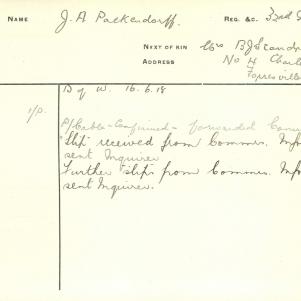 NAME J. A. Packendorff. REG. &C. 33rd
NEXT OF KIN B J
ADDRESS No 4
Forresville
D of W. 16.6.18
1/0. P/Cable - Confirmed - forwarded
Slip received from Commrs. Info
sent Inquirer
Further slips from Commrs. Info
sent Inquirer.